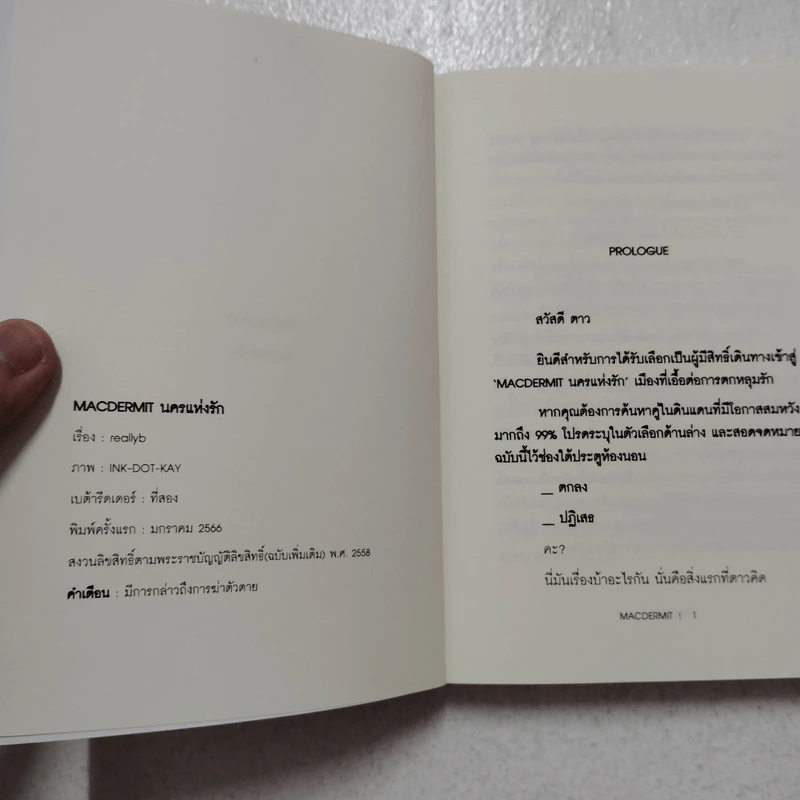 MACDERMIT นครแห่งรัก
เรื่อง : reallyb
ภาพ : INK-DOT-KAY
เบต้ารีดเดอร์ : ที่สอง
พิมพ์ครั้งแรก : มกราคม 2566
สงวนลิขสิทธิ์ตามพระราชบัญญัติลิขสิทธิ์(ฉบับเพิ่มเติม) พ.ศ. 2558
คำเตือน : มีการกล่าวถึงการฆ่าตัวตาย
PROLOGUE
สวัสดี ตาว
ยินดีสำหรับการได้รับเลือกเป็นผู้มีสิทธิ์เดินทางเข้าสู่
‘MACDERMIT นครแห่งรัก’ เมืองที่เอื้อต่อการตกหลุมรัก
หากคุณต้องการค้นหาคู่ในดินแดนที่มีโอกาสสมหวัง
มากถึง 99% โปรดระบุในตัวเลือกด้านล่าง และสอดจดหมาย
ฉบับนี้ไว้ช่องใต้ประตูห้องนอน
__ ตกลง
__ ปฏิเสธ
คะ?
นี่มันเรื่องบ้าอะไรกัน นั่นคือสิ่งแรกที่ตาวคิด
MACDERMIT | 1